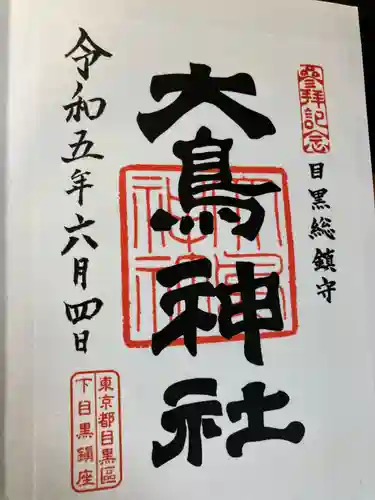 參拝記念
目黒総鎮守
大鳥神社
令和五年六月四日
東京都目黒區
下目黒鎮座